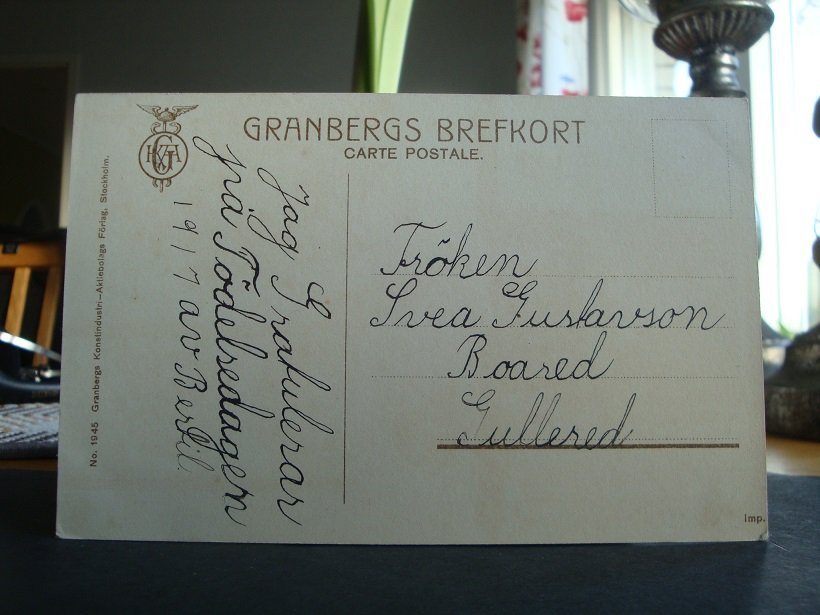 GRANBERGS BREFKORT
CARTE POSTALE.
Jag Gratulerar
på Födelsedagen
1917 av Bertil.
Fröken
Svea Gustavson
Boared
Gullered
No. 1945 Granbergs Konstindustri-Aktiebolags Förlag, Stockholm.
Imp.